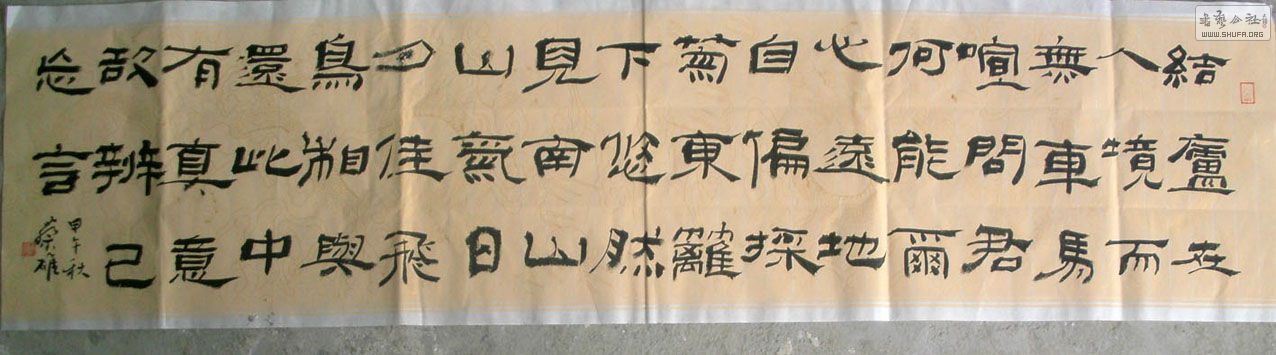 結廬在
人境而
無車馬
喧問君
何能爾
心遠地
自偏採
菊東籬
下悠然
見南山
山氣日
夕佳飛
鳥相與
還此中
有真意
欲辨己
忘言
甲午秋
蔡雄
书艺公社
WWW.SHUFA.ORG